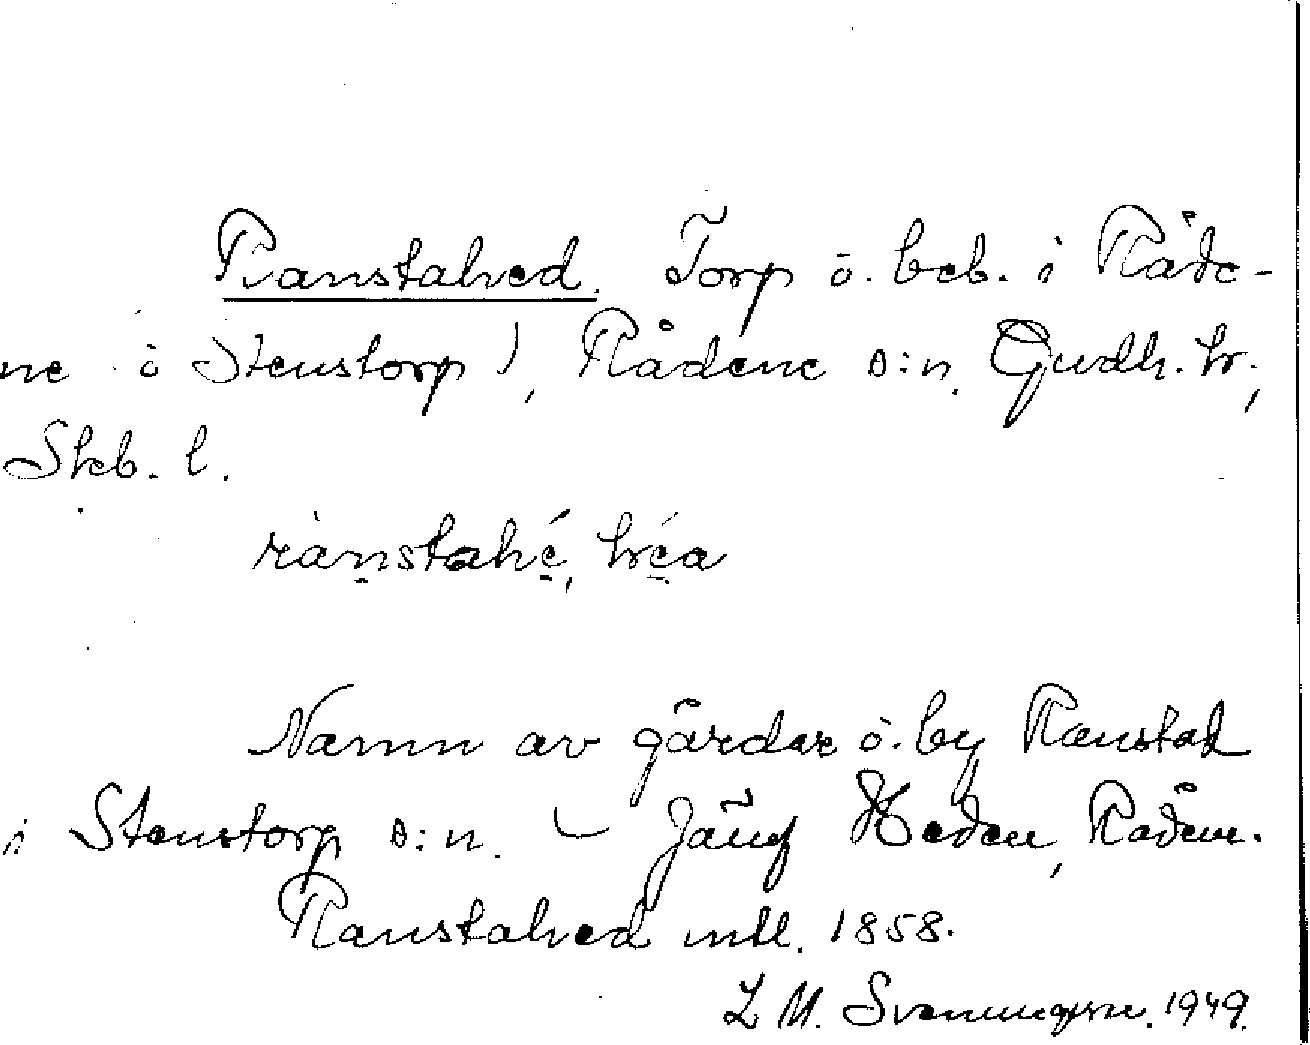 Ranstahed. Torp o. beb. i Råde-
ne o Stenstorp), Rådene s:n. Gudh. hr.,
Skb. l.
rànstahé, hréa
Namn av gårdar o. by Ranstad
i Stenstorp s:n. – Jämf Heden, Rådene.
Ranstahed mtl. 1858.
L M. Svenungsson. 1949.